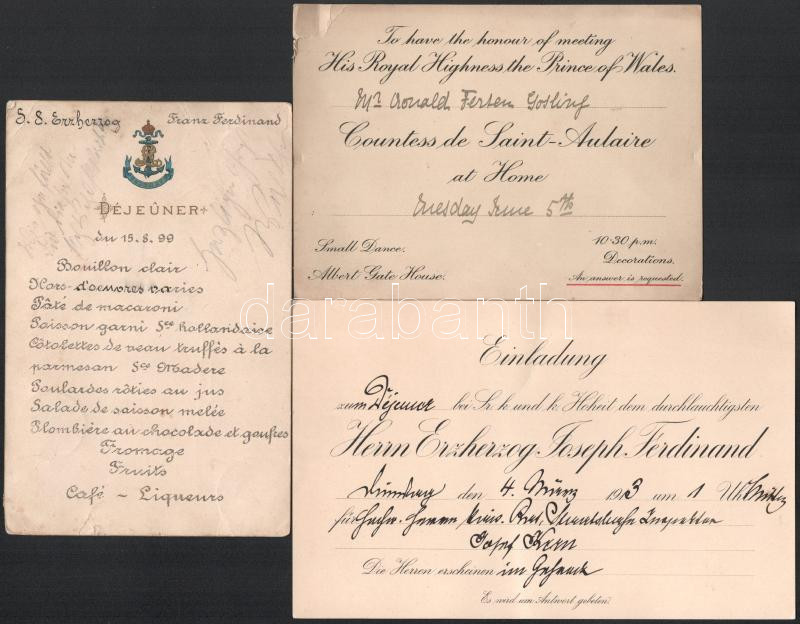 S. S. Erzherzog Franz Ferdinand
DÉJEÛNER
du 15.8.99
Bouillon clair
Hors-d'oeuvres varies
Pâté de macaroni
Poisson garni Sce hollandaise
Côtolettes de veau truffès à la
parmesan Sce Madere
Poulardes rôties au jus
Salade de saison, melée
Plombière au chocolade et gaufres
Fromage
Fruits
Café - Liqueurs
To have the honour of meeting
His Royal Highness the Prince of Wales.
Mr Ronald Fersen Gosling
Countess de Saint-Aulaire
at Home
Tuesday June 5th
Small Dance. 10-30 p.m.
Decorations.
Albert Gate House. An answer is requested.
darabanth
Einladung
zum Déjeuner bei Sr. k. und k. Hoheit dem durchlauchtigsten
Herrn Erzherzog Joseph Ferdinand
den 4. März 1913 um 1 Uhr
für Herrn
Josef Kern
Die Herren erscheinen im
Es wird um Antwort gebeten.